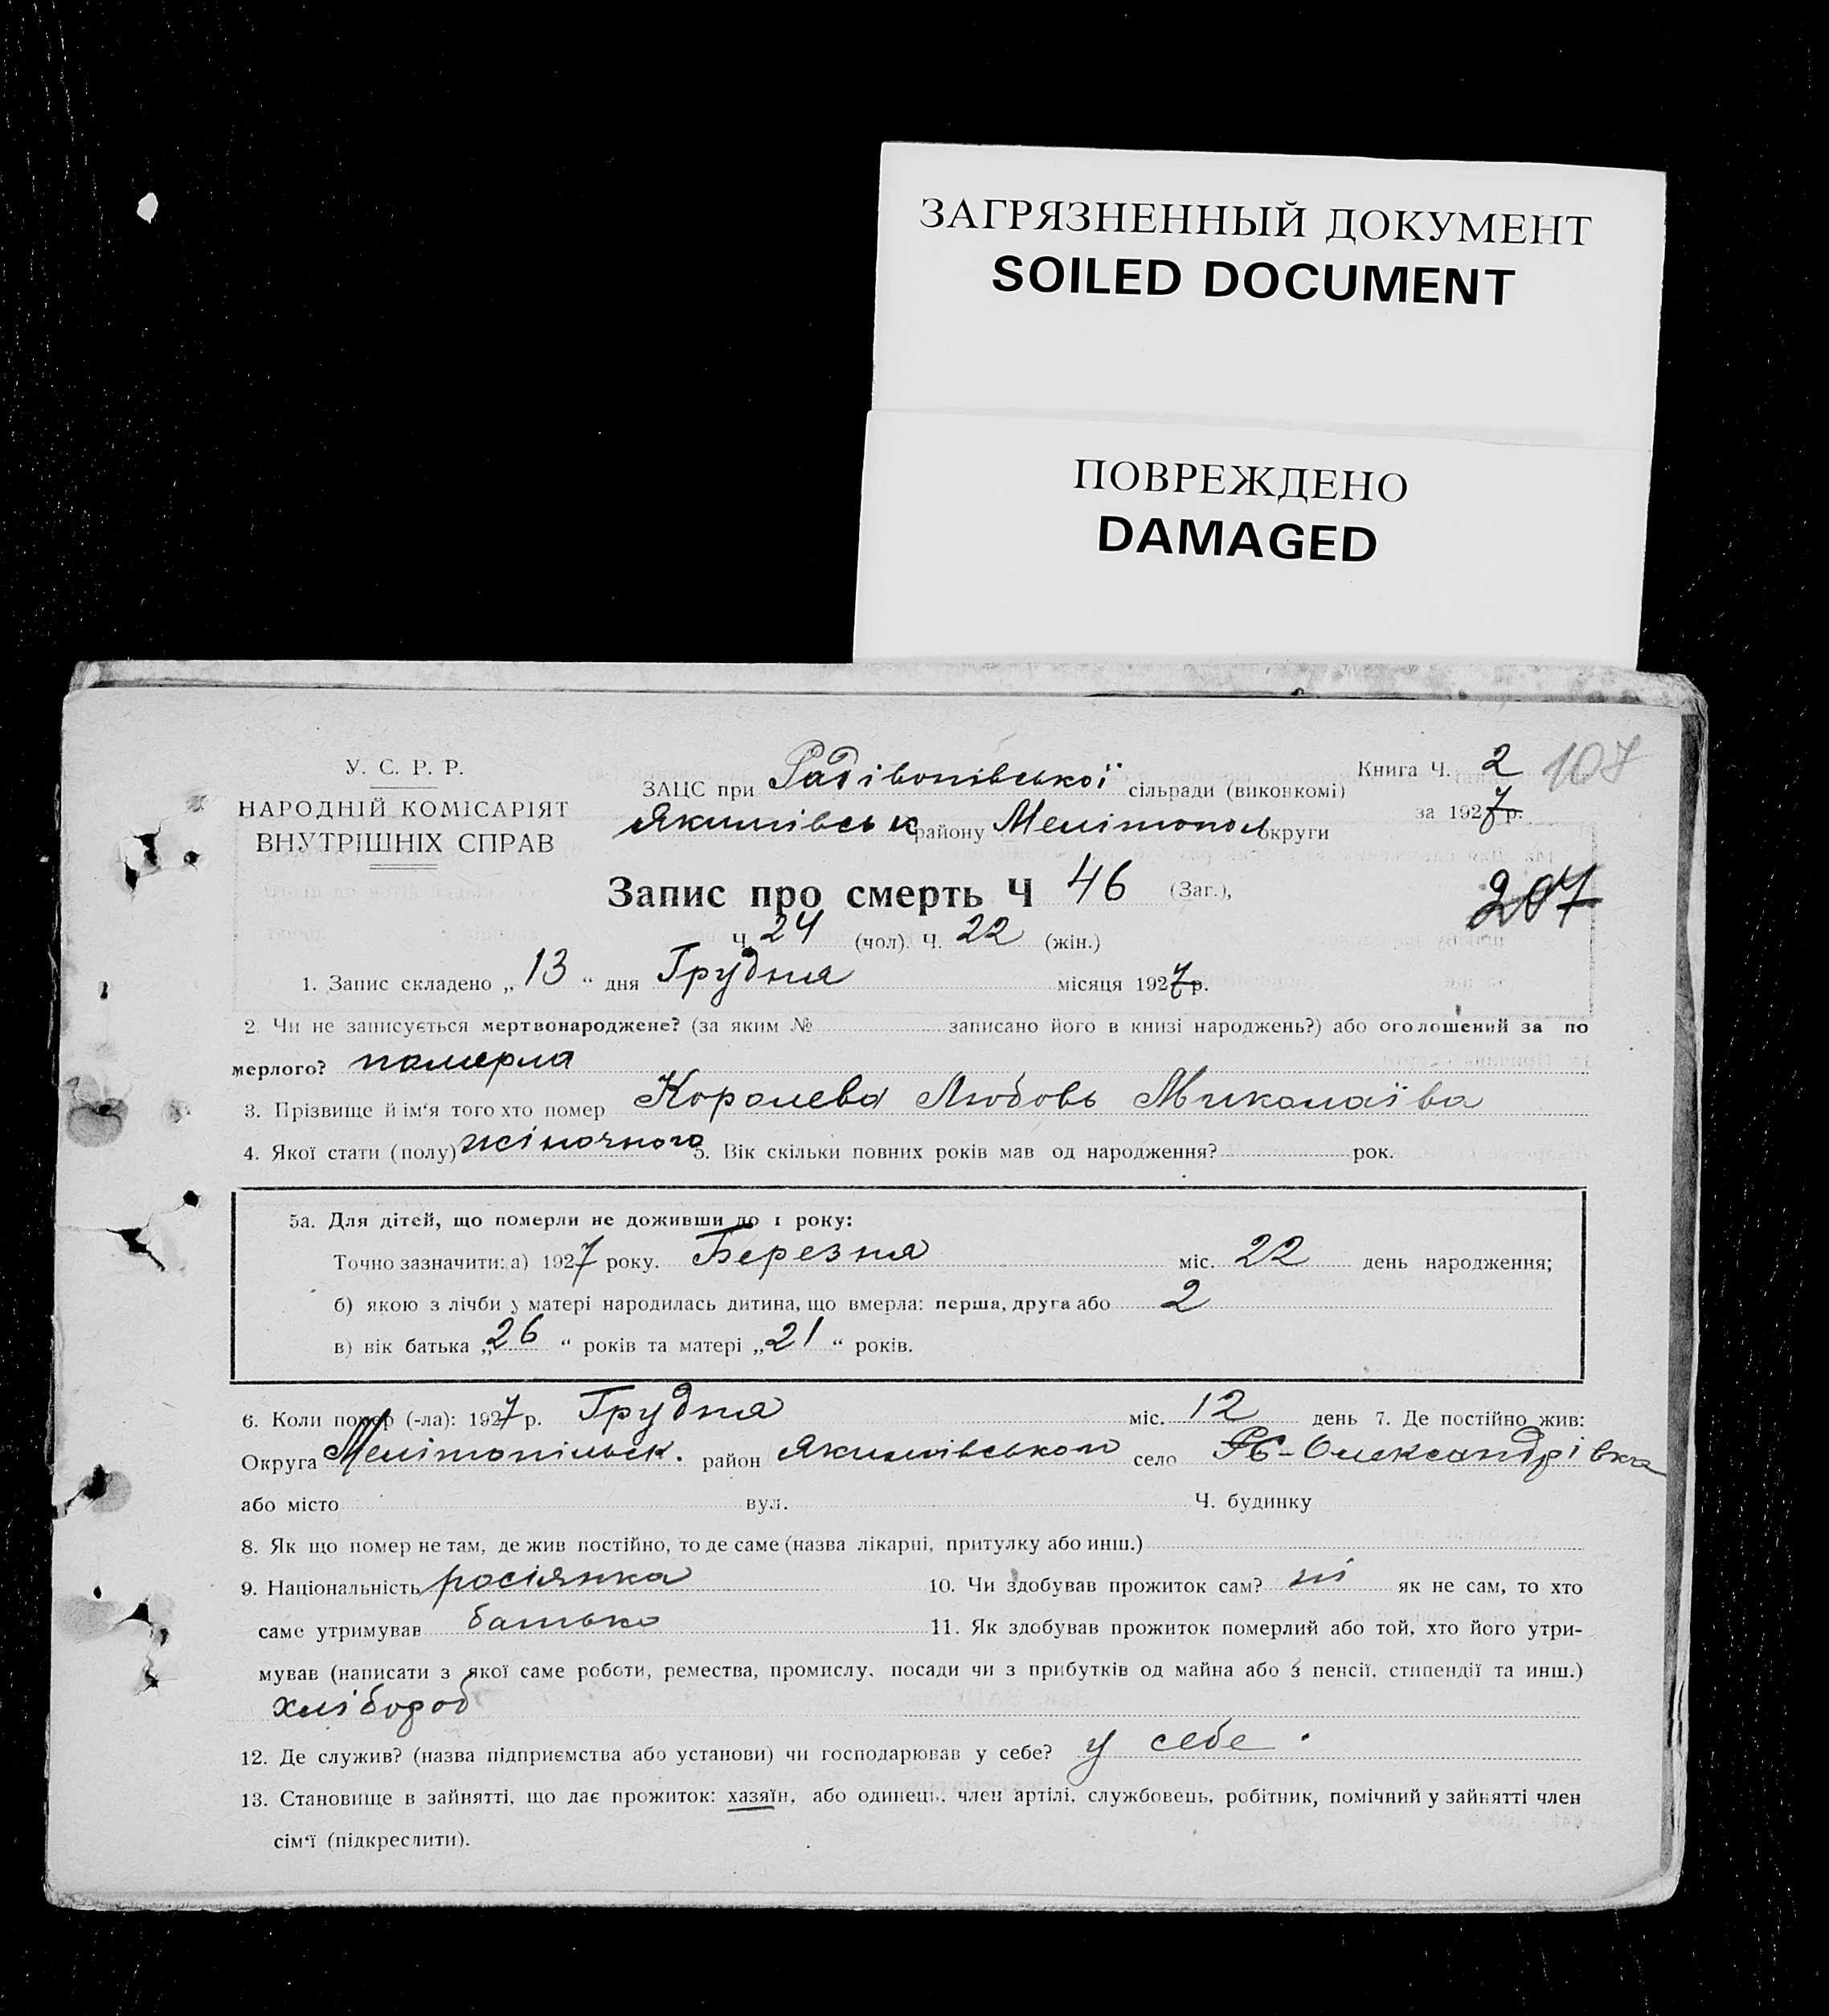 ЗАГРЯЗНЕННЫЙ ДОКУМЕНТ
SOILED DOCUMENT
ПОВРЕЖДЕНО
DAMAGED
У. С. Р. Р.
НАРОДНІЙ КОМІСАРІЯТ
ВНУТРІШНІХ СПРАВ
ЗАЦС при Радівонівської сільради (виконкомі)
Якимівськ району Мелітопол округи
Книга Ч. 2 107
за 1927 р.
Запис про смерть Ч 46 (Заг.),
207
Ч. 24 (чол). Ч. 22 (жін.)
1. Запис складено „ 13 “ дня Грудня місяця 1927 р.
2. Чи не записується мертвонароджене? (за яким № записано його в книзі народжень?) або оголошений за по
мерлого? померла
3. Прізвище й ім‘я того хто помер Королева Любовь Миколаїва
4. Якої стати (полу) жіночного 5. Вік скільки повних років мав од народження? рок.
5а. Для дітей, що померли не доживши до 1 року:
Точно зазначити: а) 1927 року. Березня міс. 22 день народження;
б) якою з лічби у матері народилась дитина, що вмерла: перша, друга або 2
в) вік батька „ 26 “ років та матері „ 21 “ років.
6. Коли помер (-ла): 1927 р. Грудня міс. 12 день 7. Де постійно жив:
Округа Мелітопільск. район Якимівського село Олександрівка
або місто вул. Ч. будинку
8. Як що помер не там, де жив постійно, то де саме (назва лікарні, притулку або инш.)
9. Національність росіянка 10. Чи здобував прожиток сам? ні як не сам, то хто
саме утримував батько 11. Як здобував прожиток померлий або той, хто його утри-
мував (написати з якої саме роботи, ремества, промислу, посади чи з прибутків од майна або з пенсії, стипендії та инш.)
хлібороб
12. Де служив? (назва підприємства або установи) чи господарював у себе? у себе .
13. Становище в зайнятті, що дає прожиток: хазяїн, або одинець, член артілі, службовець, робітник, помічний у зайнятті член
сім‘ї (підкреслити).